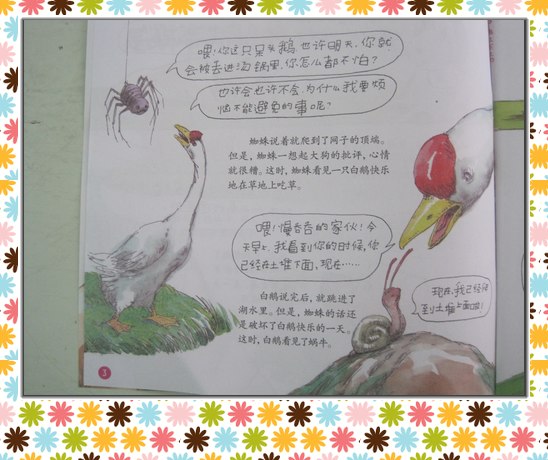 喂！你这只呆头鹅也许明天，你就
会被丢进汤锅里，你怎么都不怕？
也许会也许不会，为什么我要烦
恼不能避免的事呢？
蜘蛛说着就爬到了网子的顶端。
但是，蜘蛛一想起大狗的批评，心情
就很糟。这时，蜘蛛看见一只白鹅快乐
地在草地上吃草。
喂！慢吞吞的家伙！今
天早上，我看到你的时候，你
已经在土堆下面，现在……
现在，我已经爬
到土堆上面啦！
白鹅说完后，就跳进了
湖水里。但是，蜘蛛的话还
是破坏了白鹅快乐的一天。
这时，白鹅看见了蜗牛。
3